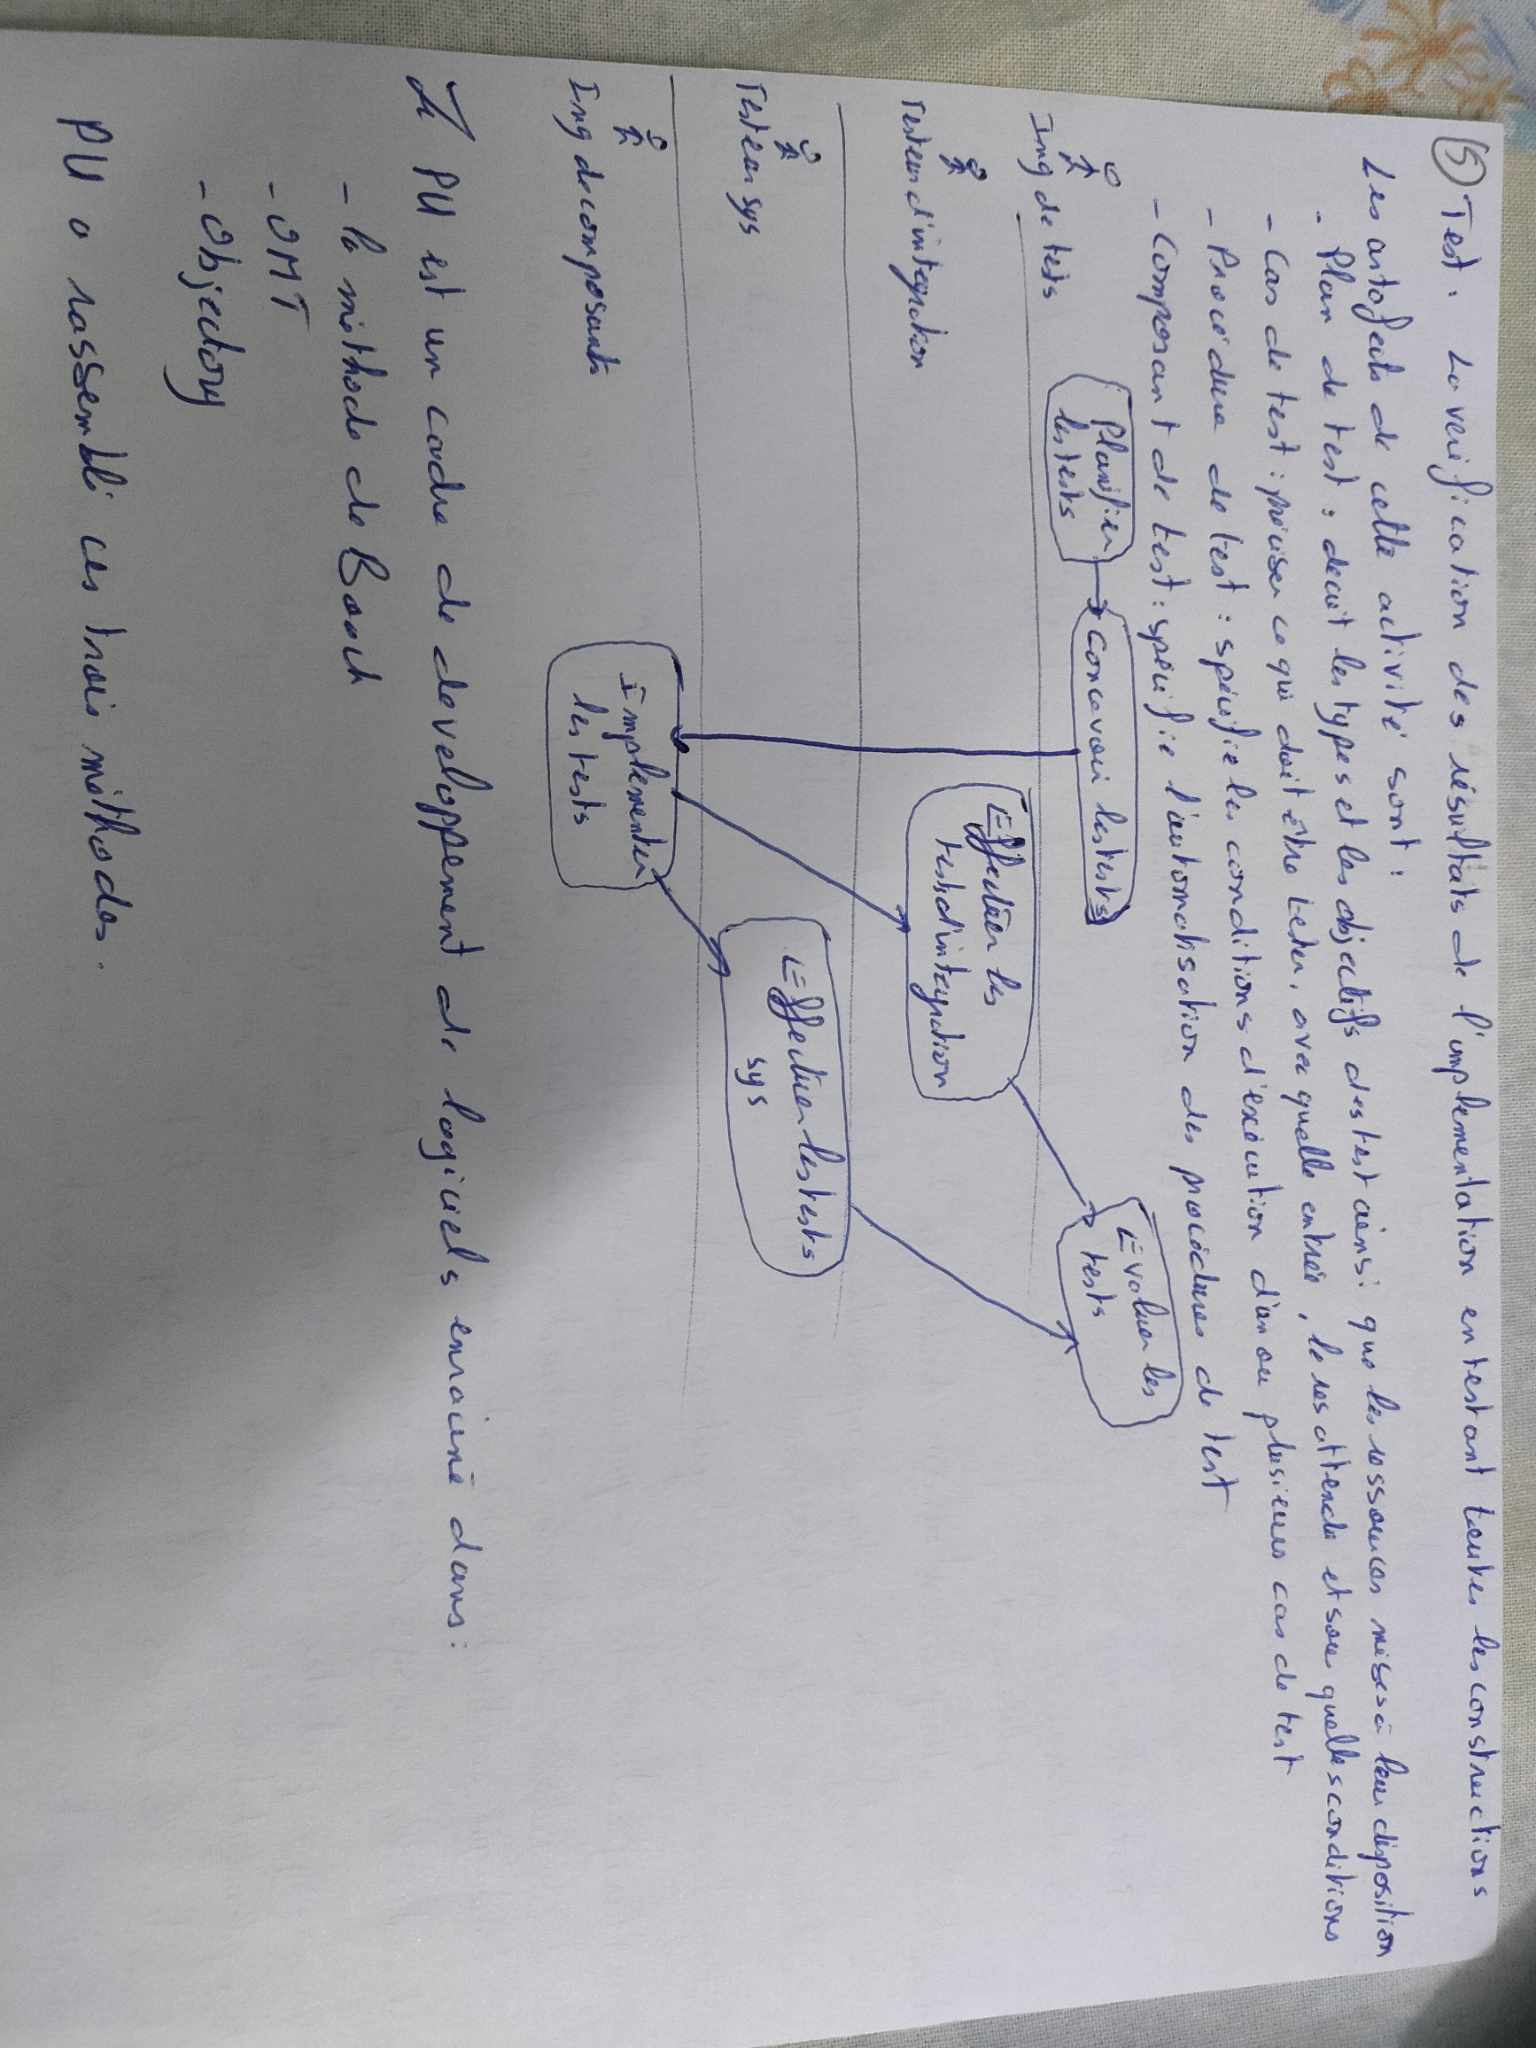 ⑤ Test. La verification des résultats de l'implementation en testant toutes les constructions
Les artefacts de cette activité sont :
- Plan de test : decrit les types et les objectifs des test ainsi que les ressources mises à leur disposition
- Cas de test : préciser ce qui doit être tester, avec quelle entrée, le res attendu et sous quelles conditions
- Procédure de test : spécifie les conditions d'exécution d'un ou plusieurs cas de test
- Composant de test : spécifie l'automatisation des procédures de test
Ing de tests
Planifier
les tests
Concevoir les tests
Évaluer les
tests
Testeur d'integration
Effectuer les
test d'integration
Testeur sys
Effectuer les tests
sys
Ing de composants
Implementer
les tests
Le PU est un cadre de developpement de logiciels enraciné dans :
- la méthode de Booch
- OMT
- Objectory
PU a rassemblé ces trois méthodes.